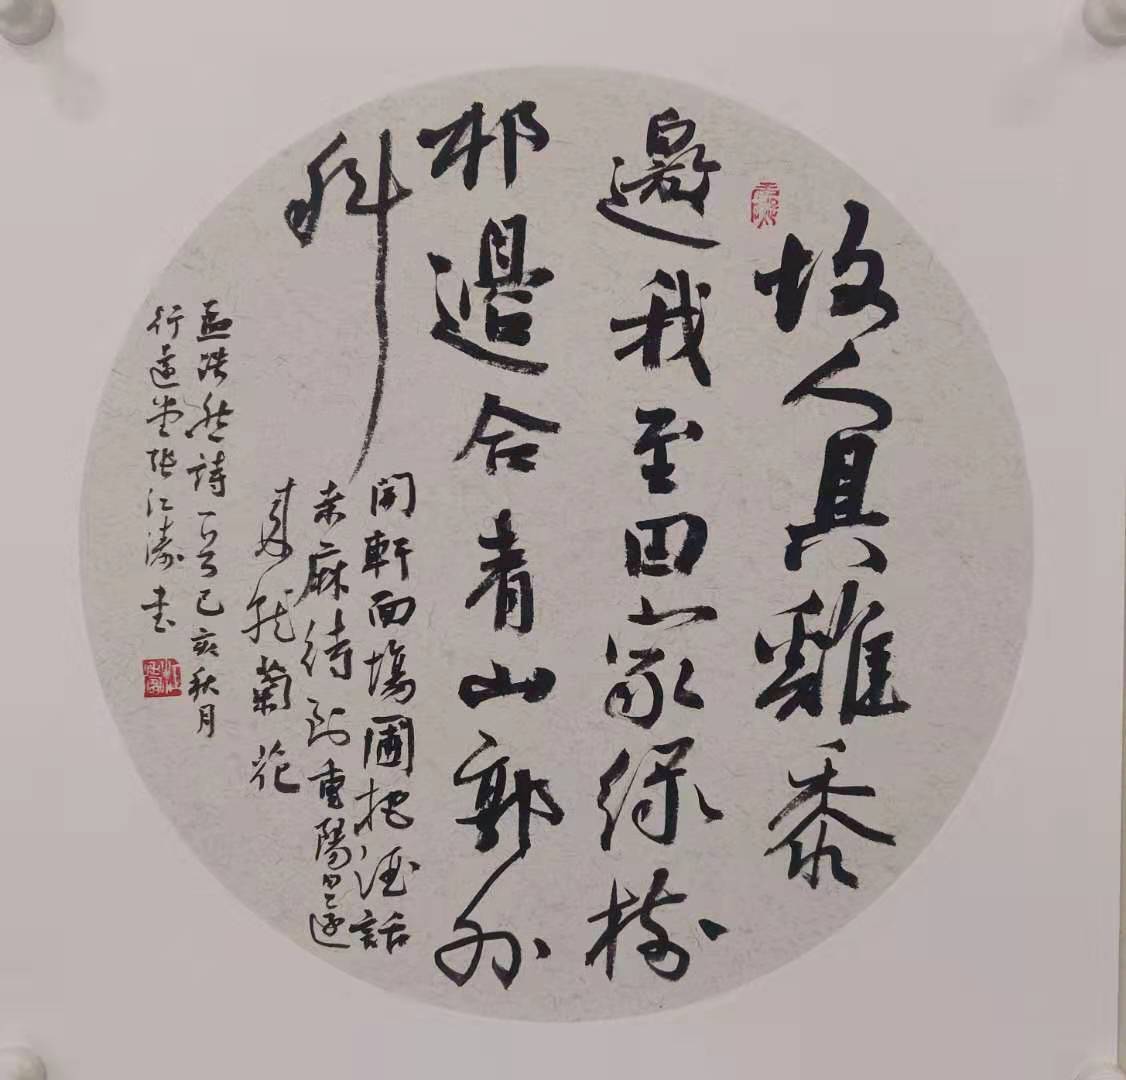 故人具雞黍
邀我至田家綠樹
邨邊合青山郭外
斜
開軒面場圃把酒話
桑麻待到重陽日還
來就菊花
孟浩然詩一首己亥秋月
行堂張江濤書